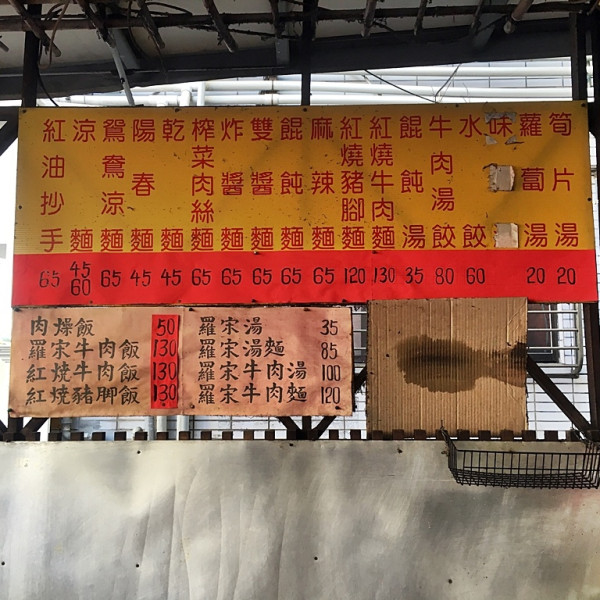 紅油抄手 65
涼麵 45 60
鴛鴦涼麵 65
陽春麵 45
乾麵 45
榨菜肉絲麵 65
炸醬麵 65
雙醬麵 65
餛飩麵 65
麻辣麵 65
紅燒豬腳麵 120
紅燒牛肉麵 130
餛飩湯 35
牛肉湯餃 80
水餃 60
味
蘿蔔湯 20
筍片湯 20
肉燥飯 50
羅宋牛肉飯 130
紅焼牛肉飯 130
紅焼豬脚飯 130
羅宋湯 35
羅宋湯麵 85
羅宋牛肉湯 100
羅宋牛肉麵 120